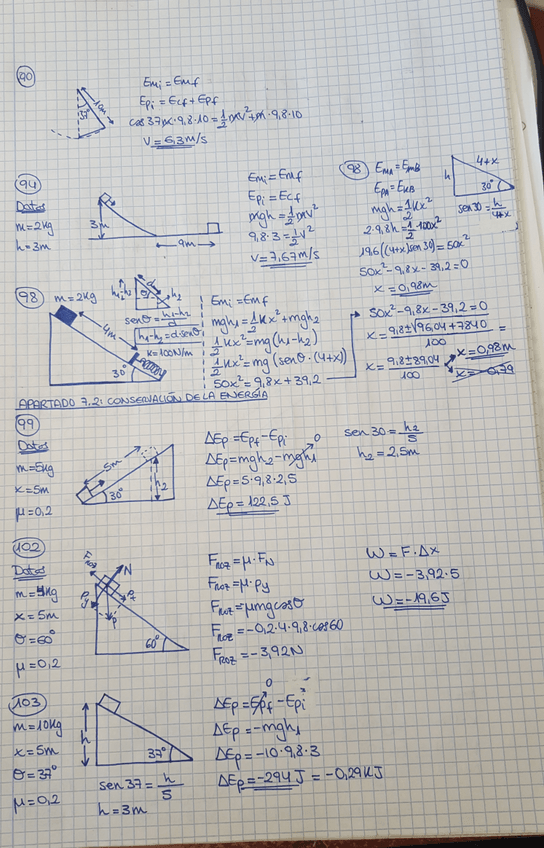 90
10m
37°
Emi = Emf
Epi = Ecf + Epf
cos37·m·9,8·10 = 1/2 mv² + m·9,8·10
v = 6,3 m/s
94
Datos
m = 2kg
h = 3m
3m
9m
Emi = Emf
Epi = Ecf
mgh = 1/2 mv²
9,8·3 = 1/2 v²
v = 7,67 m/s
98
EmA = EmB
EpA = EkB
mgh = 1/2 Kx²
2·9,8h = 1/2·100x²
19,6((4+x)sen30) = 50x²
50x² - 9,8x - 39,2 = 0
x = 0,98m
h
4+x
30°
sen30 = h/4+x
98
m = 2kg
4m
30°
h1
h2
d
senθ = h1-h2/d
h1-h2 = d·senθ
K = 100N/m
Emi = Emf
mgh1 = 1/2 Kx² + mgh2
1/2 Kx² = mg(h1-h2)
1/2 Kx² = mg(senθ·(4+x))
50x² = 9,8x + 39,2
50x² - 9,8x - 39,2 = 0
x = 9,8 ± √96,04 + 7840 / 100 =
x = 9,8 ± 89,04 / 100
x = 0,98m
x = -0,79
APARTADO 7.2: CONSERVACIÓN DE LA ENERGÍA
99
Datos
m = 5kg
x = 5m
μ = 0,2
5m
30°
h2
ΔEp = Epf - Epi
ΔEp = mgh2 - mgh1
0
ΔEp = 5·9,8·2,5
ΔEp = 122,5 J
sen30 = h2/5
h2 = 2,5m
102
Datos
m = 4kg
x = 5m
θ = 60°
μ = 0,2
Froz
N
Py
Px
P
60°
FROZ = μ·FN
FROZ = μ·Py
FROZ = μmgcosθ
FROZ = -0,2·4·9,8·cos60
FROZ = -3,92N
W = F·Δx
W = -3,92·5
W = -19,6J
103
m = 10kg
x = 5m
θ = 37°
μ = 0,2
h
37°
sen37 = h/5
h = 3m
0
ΔEp = Epf - Epi
ΔEp = -mgh1
ΔEp = -10·9,8·3
ΔEp = -294 J = -0,29 KJ